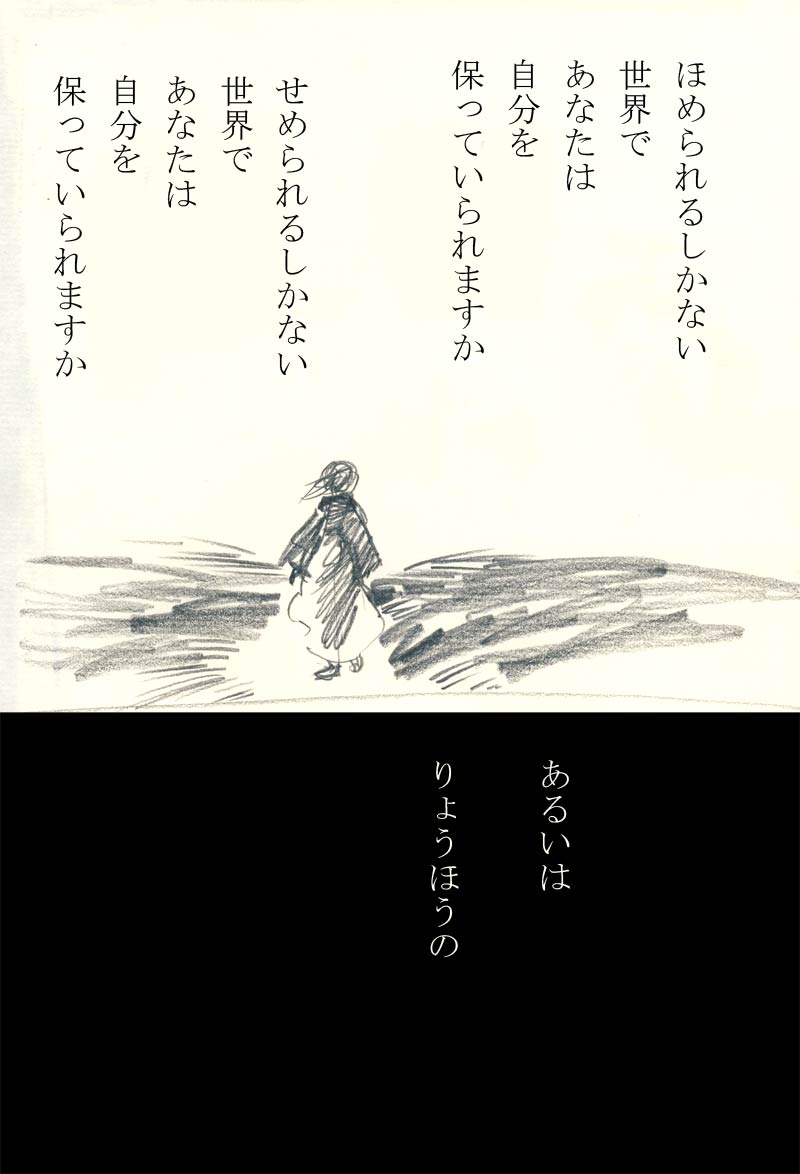 ほめられるしかない
世界で
あなたは
自分を
保っていられますか
せめられるしかない
世界で
あなたは
自分を
保っていられますか
あるいは
りょうほうの